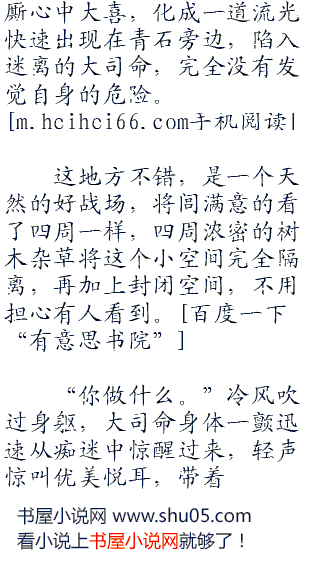 厮心中大喜，化成一道流光
快速出现在青石旁边，陷入
迷离的大司命，完全没有发
觉自身的危险。
[m.hcihci66.com手机阅读|
这地方不错，是一个天
然的好战场，将闾满意的看
了四周一样，四周浓密的树
木杂草将这个小空间完全隔
离，再加上封闭空间，不用
担心有人看到。[百度一下
“有意思书院”]
“你做什么。”冷风吹
过身躯，大司命身体一颤迅
速从痴迷中惊醒过来，轻声
惊叫优美悦耳，带着
书屋小说网 www.shu05.com
看小说上书屋小说网就够了！